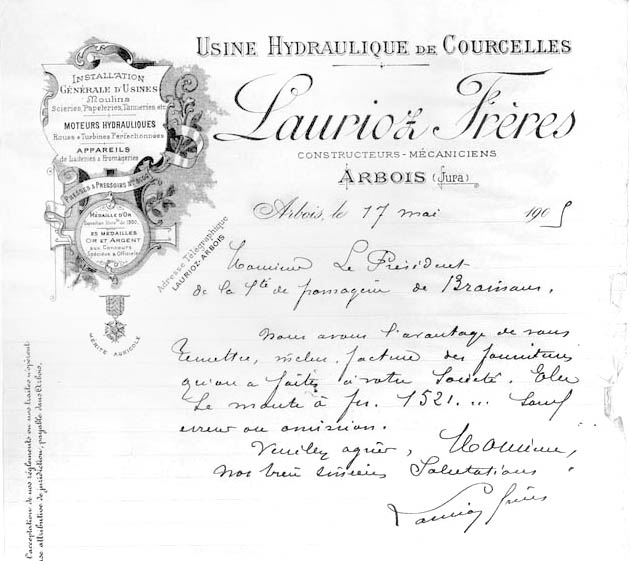 USINE HYDRAULIQUE DE COURCELLES
Laurioz Frères
CONSTRUCTEURS-MÉCANICIENS
ARBOIS (Jura)
INSTALLATION
GÉNÉRALE D'USINES
Moulins
Scieries, Papeteries, Tanneries etc
MOTEURS HYDRAULIQUES
Roues & Turbines Perfectionnées
APPAREILS
de Laiteries & Fromageries
PRESSES & PRESSOIRS
MÉDAILLE D'OR
1900
25 MÉDAILLES
OR ET ARGENT
aux Concours
Spéciaux & Officiels
MÉRITE AGRICOLE
Adresse Télégraphique
LAURIOZ-ARBOIS
Arbois, le 17 mai 1905
Monsieur Le Président
de la Sté de fromagerie de Brainans.
Nous avons l'avantage de vous
remettre, inclus, facture des fournitures
qu'on a faites à votre Société. Elle
se monte à fr. 1521. ... sauf
erreur ou omission.
Veuillez agréer, Monsieur,
nos bien sincères Salutations.
Laurioz frères
l'acceptation de nos règlements ou nos traites n'opérant
attributive de juridiction, payable dans Arbois.